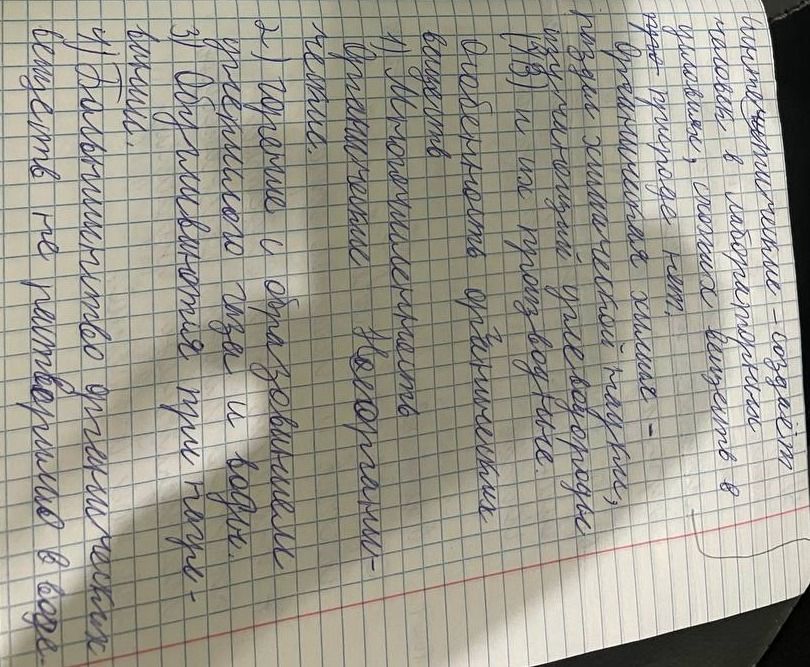 Синтетические - создаёт
человек в лабораторных
условиях, таких веществ в
природе нет.
Органическая химия -
раздел химической науки,
изучающий углеводороды
и их производные.
Особенность органических
веществ
1) Многочисленность
Органические Неоргани-
ческие.
2) горение с образованием
углекислого газа и воды.
3) Обугливаются при нагре-
вании.
4) Большинство органических
веществ не растворимо в воде.